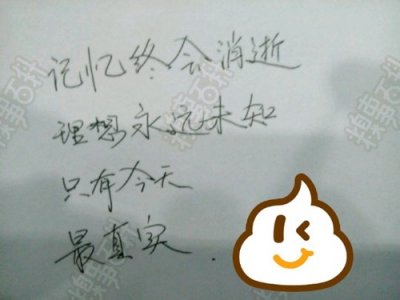 记忆终会消逝
理想永远未知
只有今天
最真实.